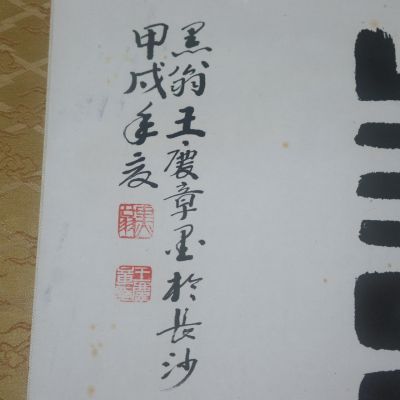 黑翁王慶章墨於長沙
甲戌年夏